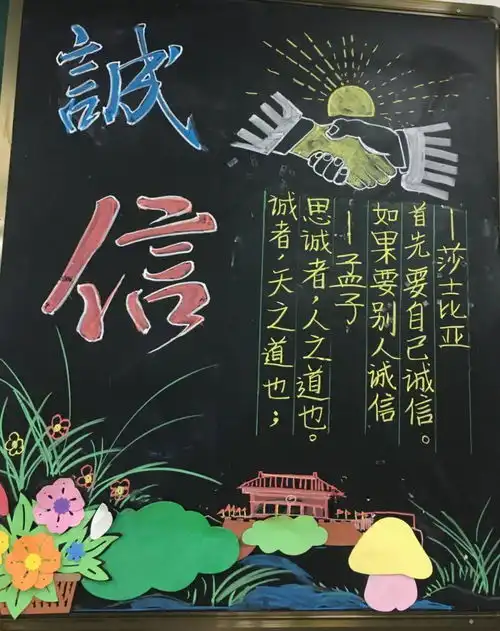 誠信
诚者，天之道也；
思诚者，人之道也。
—孟子
如果要别人诚信
首先要自己诚信。
—莎士比亚